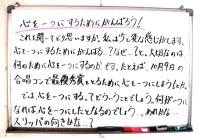 心を一つにするためにがんばろう!
これを聞いてどう思いますか。私は少し変な感じがします。
心を一つにするためにがんばる。?なぜ…?と。大切なのは
何のために心を一つにするのか です。たとえば、10月9日の
合唱コンで最優秀賞をとるために心を一つにしよう!とか。
では、心を一つにする。?どういうことでしょう。何が一つに
なれば心を一つにしたとなるのでしょう…。あれかな…
スリッパの向きかな…?